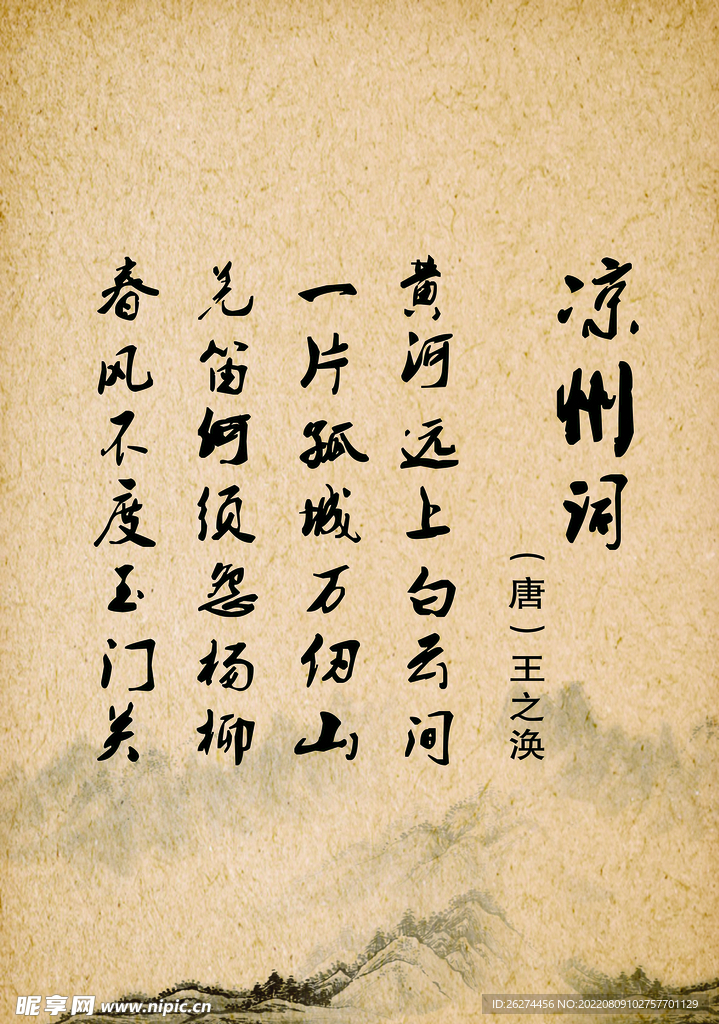 凉州词
（唐）王之涣
黄河远上白云间
一片孤城万仞山
羌笛何须怨杨柳
春风不度玉门关
昵享网 www.nipic.cn
ID:26274456 NO:20220809102757701129